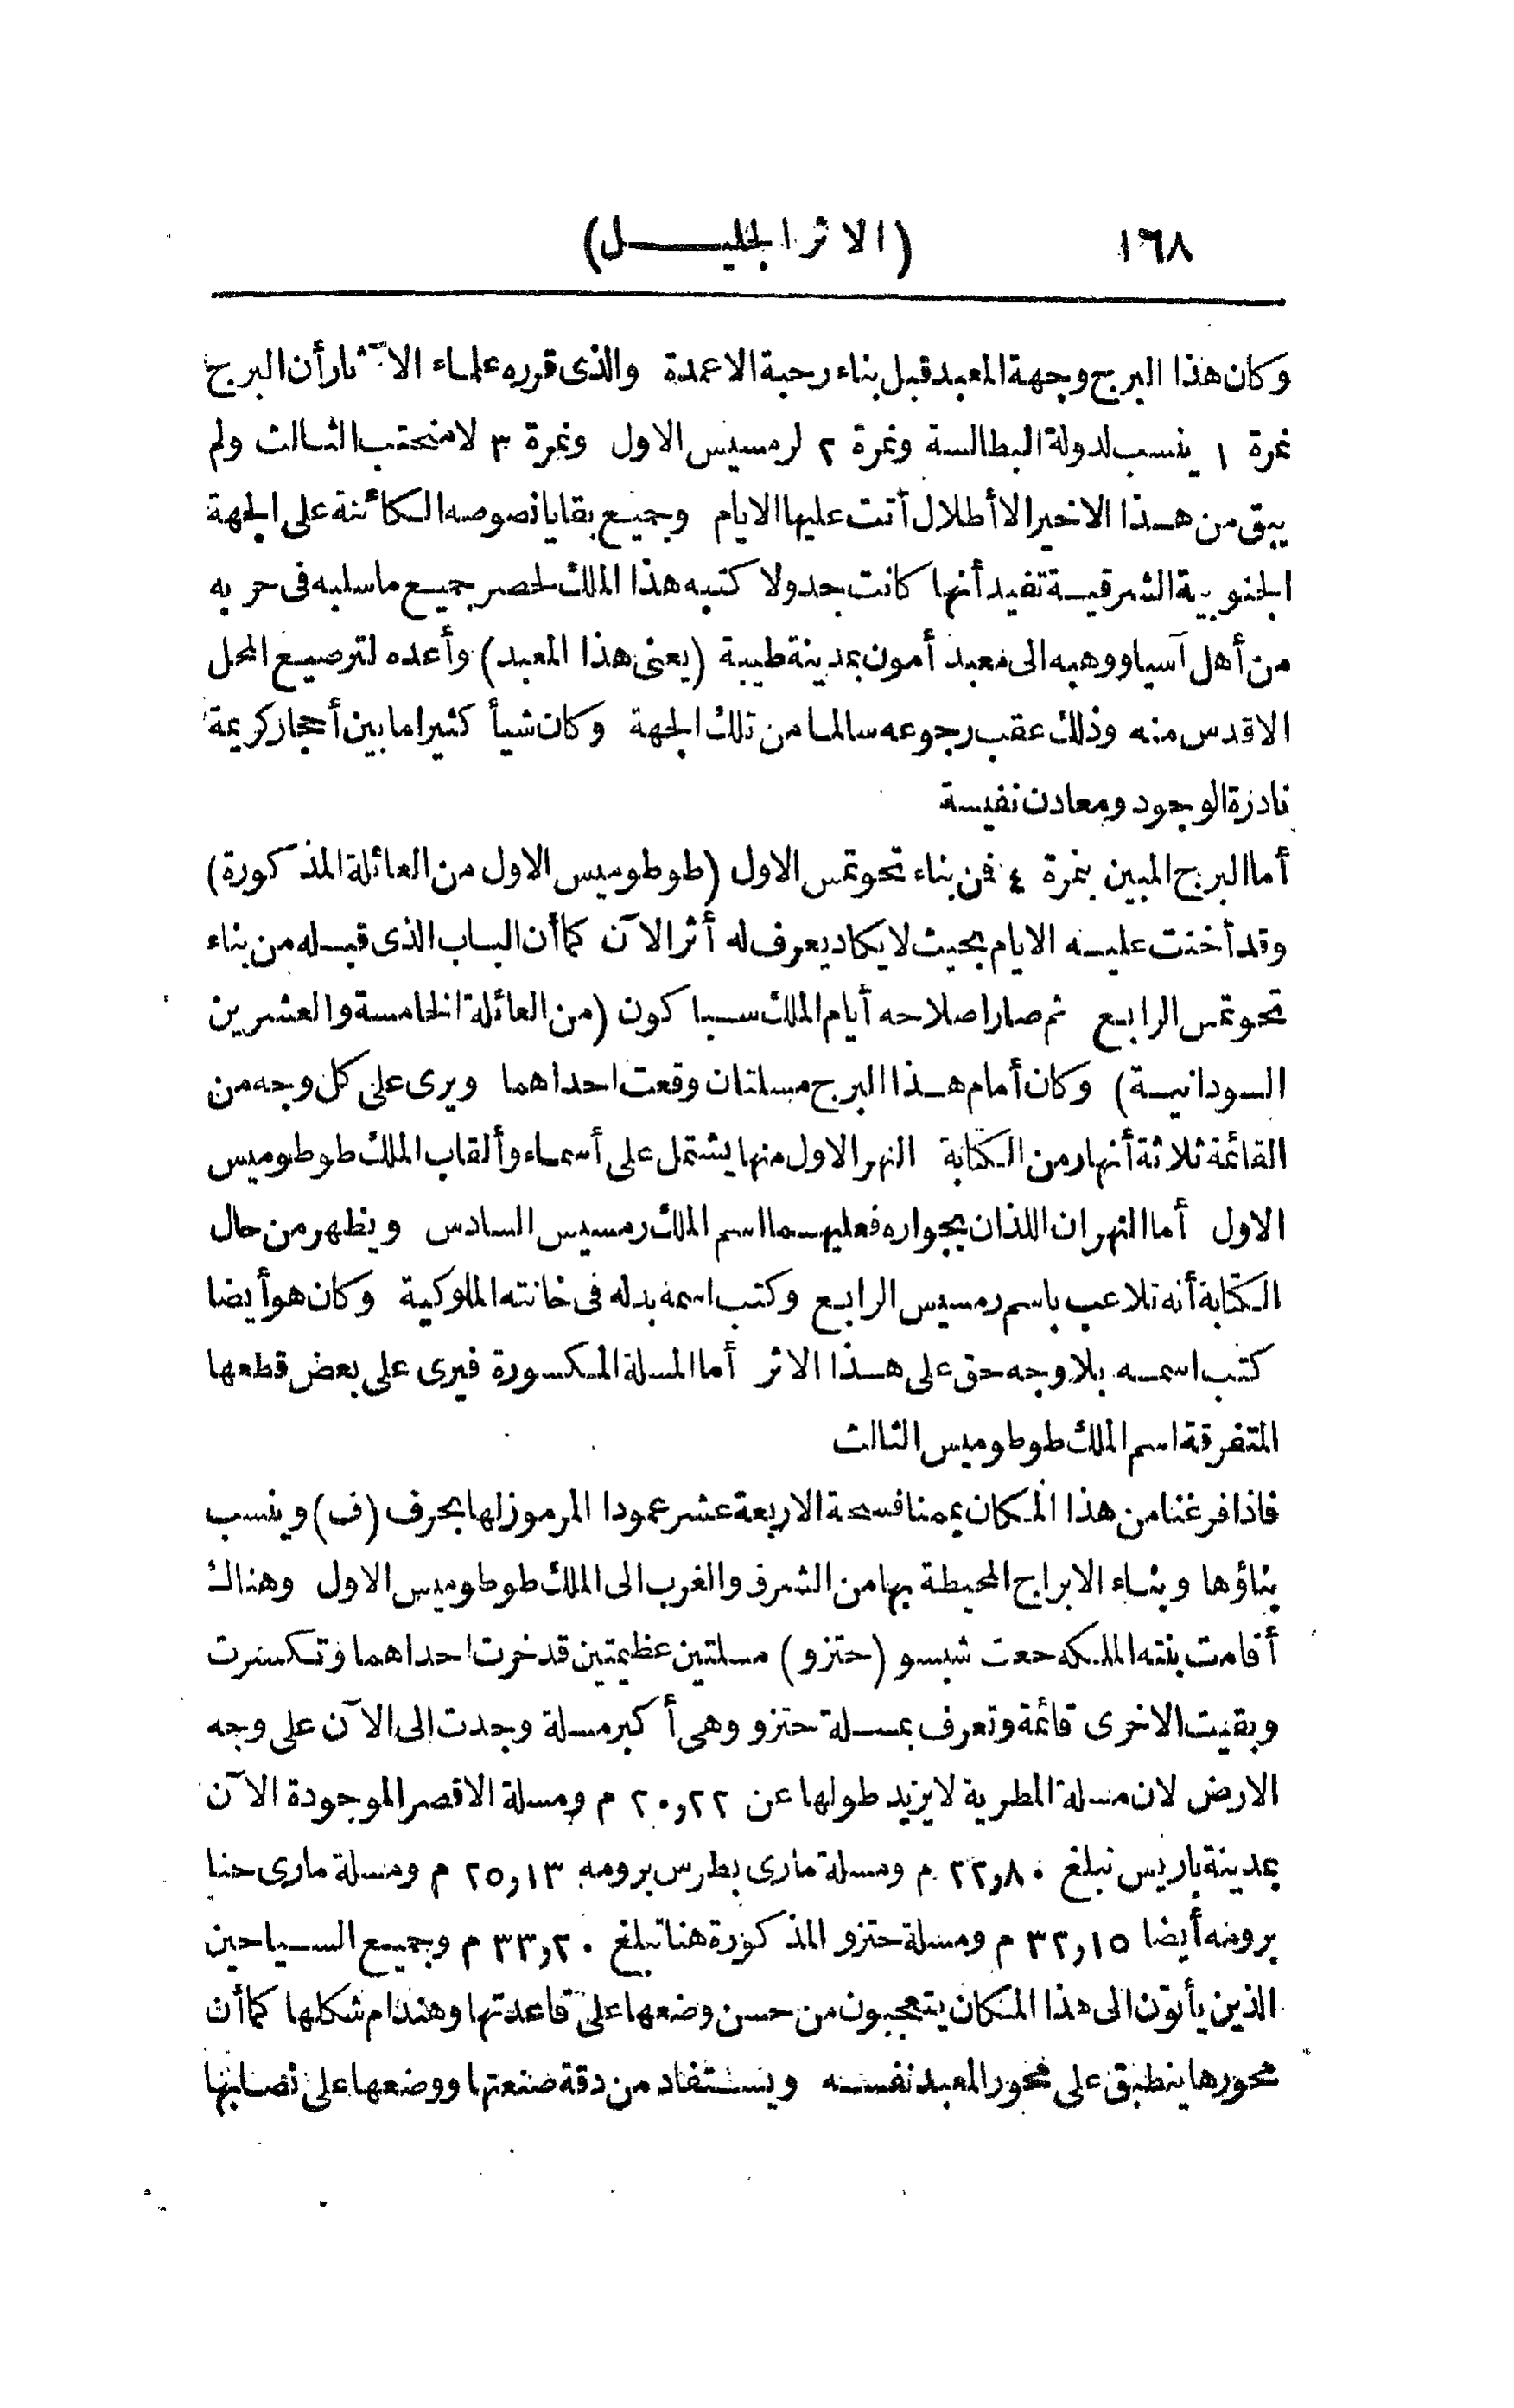 ١٦٨ (الاثر الجليل)
وكان هذا البرج وجهة المعبد قبل بناء رحبة الاعمدة والذى قرره علماء الاآثار أن البرج
نمرة ١ ينسب لدولة البطالسة ونمرة ٢ لرمسيس الاول ونمرة ٣ لامنحتب الثالث ولم
يبق من هذا الاخير الا أطلال أتت عليها الايام وجميع بقايا نصوصه الكائنة على الجهة
الجنوبية الشرقية تفيد أنها كانت جدولا كتبه هذا الملك لحصر جميع ما سلبه فى حربه
من أهل آسيا ووهبه الى معبد أمون بمدينة طيبة (يعنى هذا المعبد) وأعده لترصيع المحل
الاقدس منه وذلك عقب رجوعه سالما من تلك الجهة وكان شيأ كثيرا ما بين أحجار كريمة
نادرة الوجود ومعادن نفيسة
أما البرج المبين بنمرة ٤ فن بناء تحوتمس الاول (طوطوميس الاول من العائلة المذكورة)
وقد أخنت عليه الايام بحيث لا يكاد يعرف له أثر الآن كما أن الباب الذى قبله من بناء
تحوتمس الرابع ثم صار اصلاحه أيام الملك سباكون (من العائلة الخامسة والعشرين
السودانية) وكان أمام هذا البرج مسلتان وقعت احداهما ويرى على كل وجه من
القائمة ثلاثة أنهار من الكتابة النهر الاول منها يشتمل على أسماء وألقاب الملك طوطوميس
الاول أما النهران اللذان بجواره فعليهما اسم الملك رمسيس السادس ويظهر من حال
الكتابة أنه تلاعب باسم رمسيس الرابع وكتب اسمه بدله فى خانته الملوكية وكان هو أيضا
كتب اسمه بلا وجه حق على هذا الاثر أما المسلة المكسورة فيرى على بعض قطعها
المتفرقة اسم الملك طوطوميس الثالث
فاذا فرغنا من هذا المكان يممنا فسحة الاربعة عشر عمودا المرموز لها بحرف (ف) وينسب
بناؤها وبناء الابراج المحيطة بها من الشرق والغرب الى الملك طوطوميس الاول وهناك
أقامت بنته الملكة حعت شبسو (حتزو) مسلتين عظيمتين قد خرت احداهما وتكسرت
وبقيت الاخرى قائمة وتعرف بمسلة حتزو وهى أكبر مسلة وجدت الى الآن على وجه
الارض لان مسلة المطرية لا يزيد طولها عن ٢٠,٢٢ م ومسلة الاقصر الموجودة الآن
بمدينة باريس تبلغ ٢٢,٨٠ م ومسلة مارى بطرس برومه ٢٥,١٣ م ومسلة مارى حنا
برومه أيضا ٣٢,١٥ م ومسلة حتزو المذكورة هنا تبلغ ٣٣,٢٠ م وجميع السياحين
الذين يأتون الى هذا المكان يتعجبون من حسن وضعها على قاعدتها وهندام شكلها كما أن
محورها ينطبق على محور المعبد نفسه ويستفاد من دقة صنعتها ووضعها على نصابها